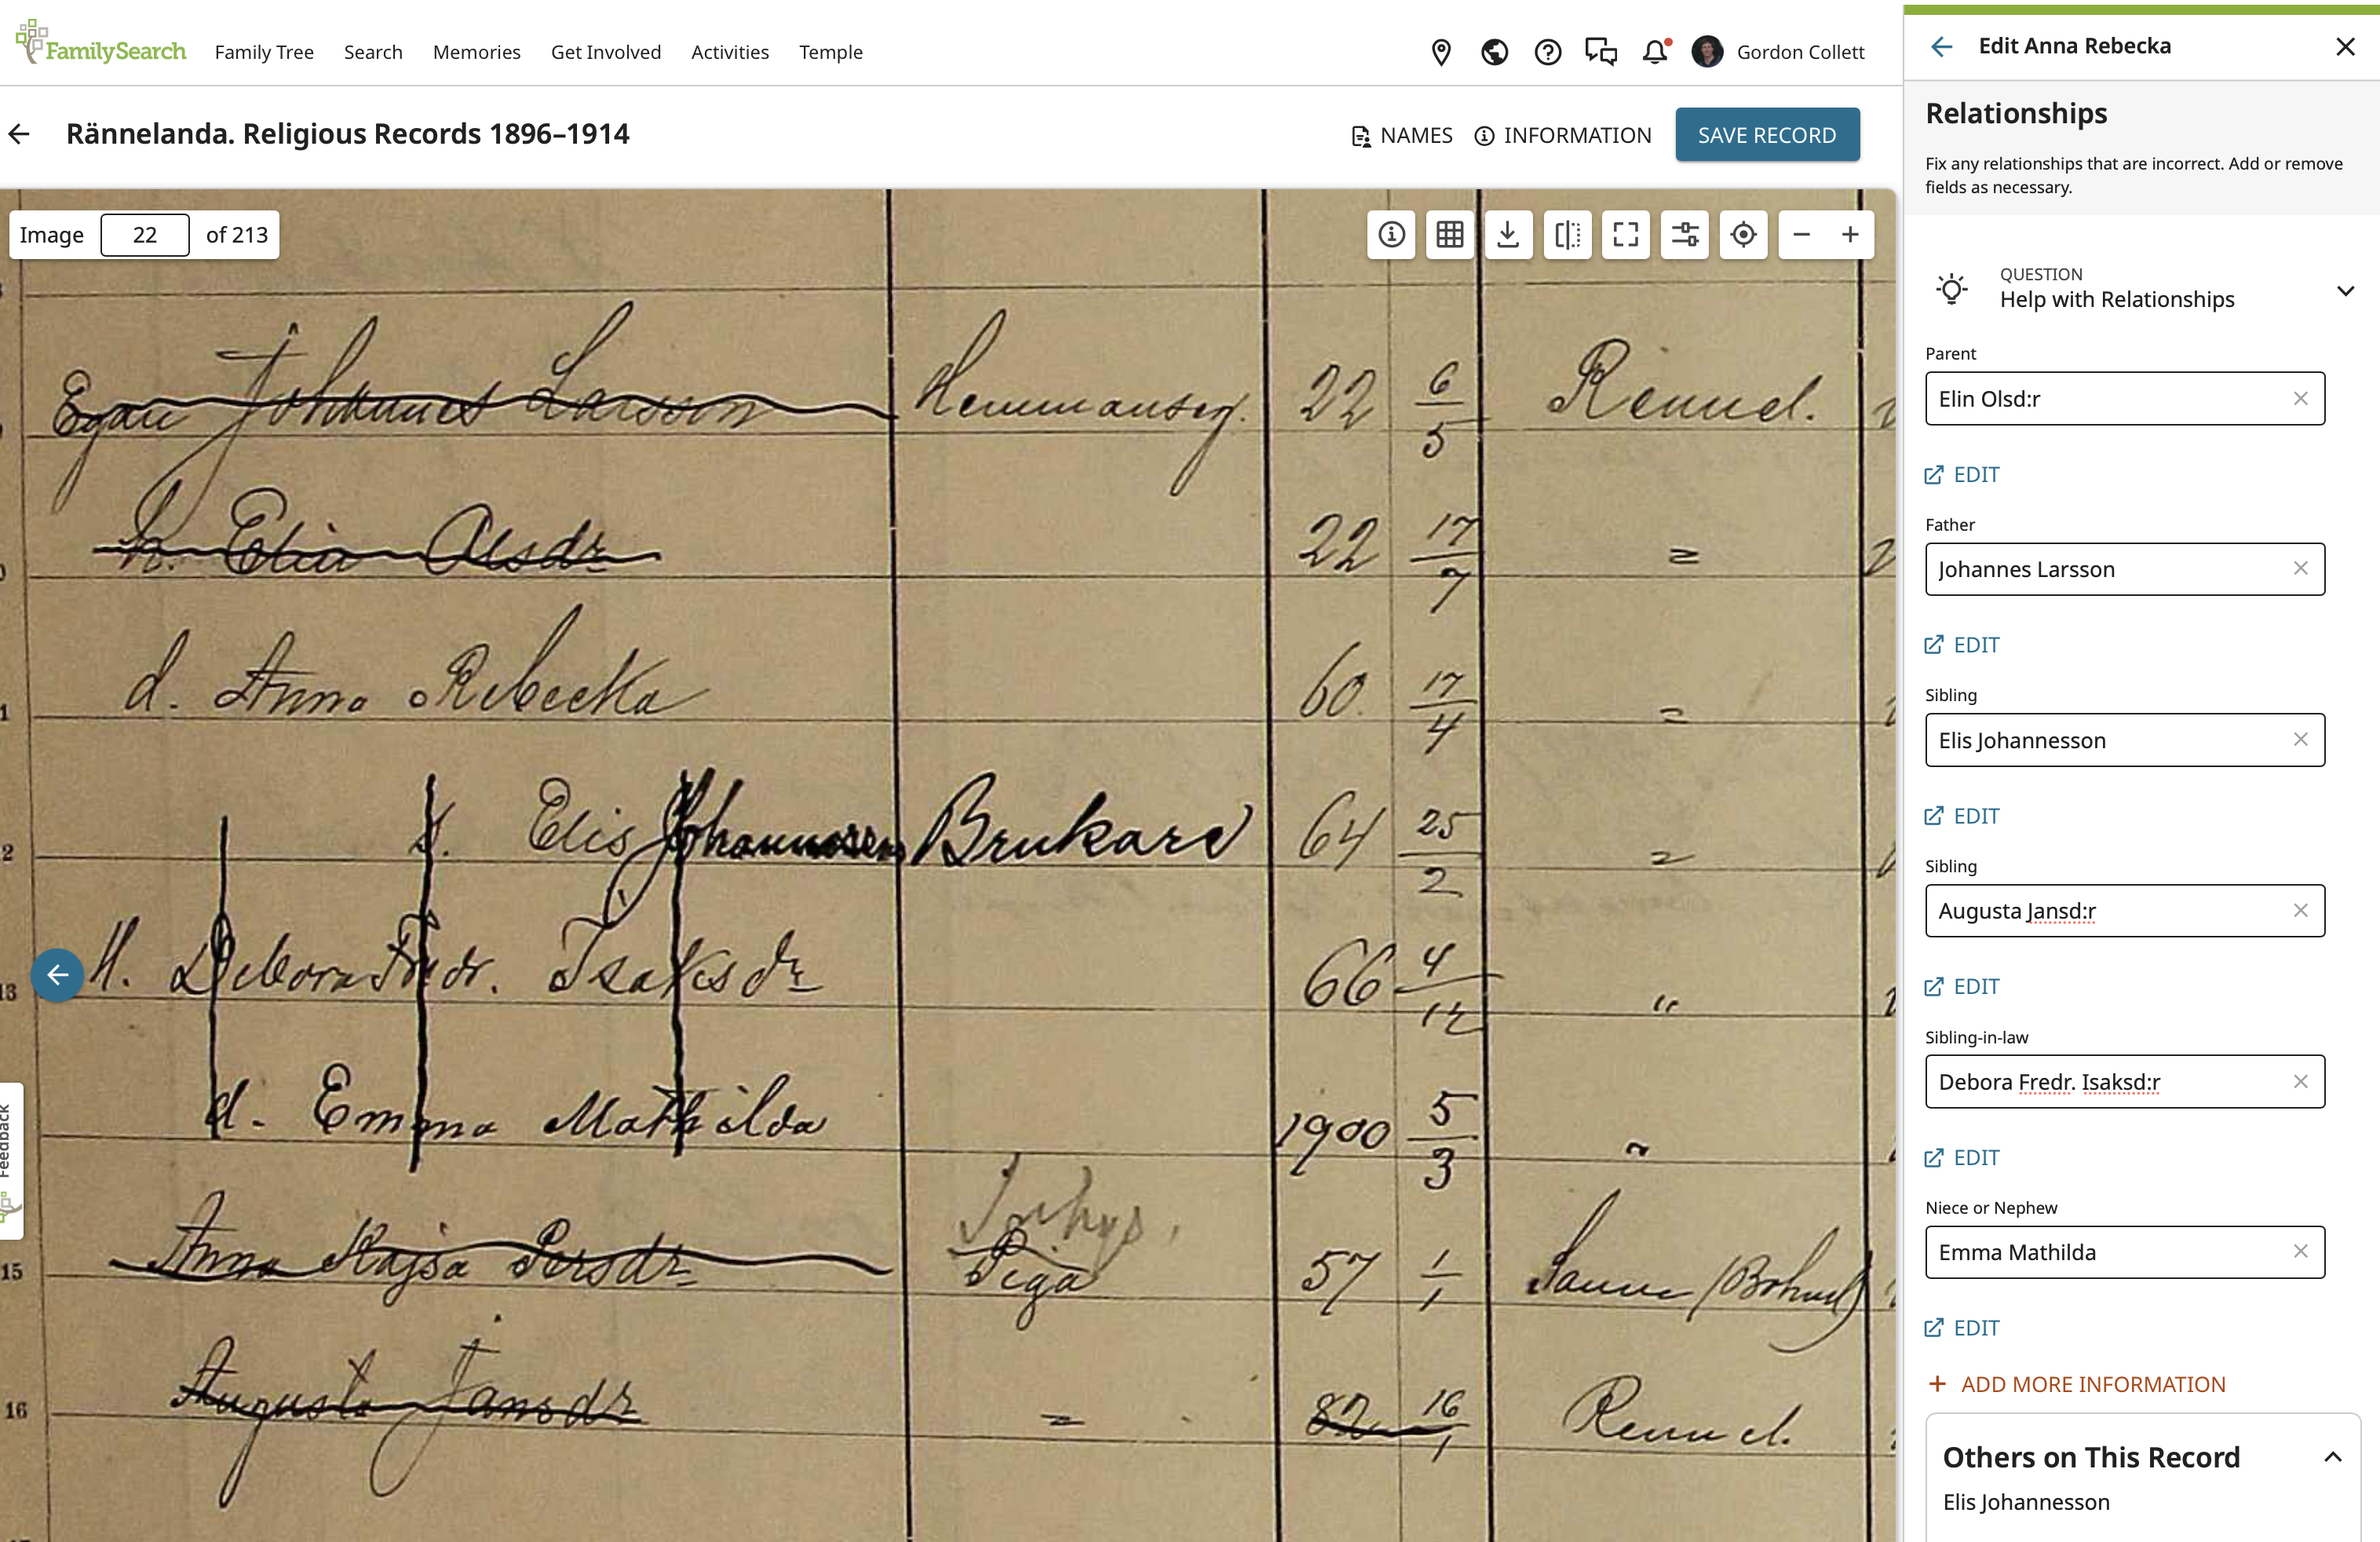 FamilySearch Family Tree Search Memories Get Involved Activities Temple Gordon Collett
Rännelanda. Religious Records 1896–1914 NAMES INFORMATION SAVE RECORD
Image 22 of 213
Egau Johannes Larsson Hemmanseg. 22 6/5 Rennel.
h. Elin Olsdr 22 17/7 =
d. Anna Rebecka 60. 17/4 =
s. Elis Johannesson Brukare 64 25/2 =
H. Debora Fredr. Isaksdr 66 4/12 "
d. Emma Mathilda 1900 5/3 "
Inhys.
15 Anna Kajsa Persdr Piga 57 1/1 Sanne (Bohusl)
16 Augusta Jansdr = 82 16/1 Rennel.
Feedback
Edit Anna Rebecka
Relationships
Fix any relationships that are incorrect. Add or remove
fields as necessary.
QUESTION
Help with Relationships
Parent
Elin Olsd:r
EDIT
Father
Johannes Larsson
EDIT
Sibling
Elis Johannesson
EDIT
Sibling
Augusta Jansd:r
EDIT
Sibling-in-law
Debora Fredr. Isaksd:r
EDIT
Niece or Nephew
Emma Mathilda
EDIT
+ ADD MORE INFORMATION
Others on This Record
Elis Johannesson